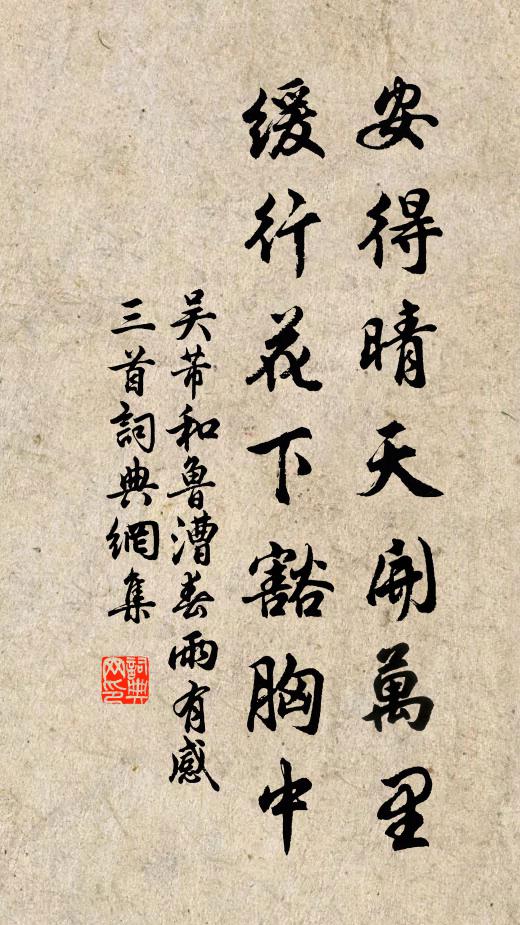 安得晴天開萬里
緩行花下豁胸中
吴芾和魯漕春雨有感
三首詞典網集
詞典網印